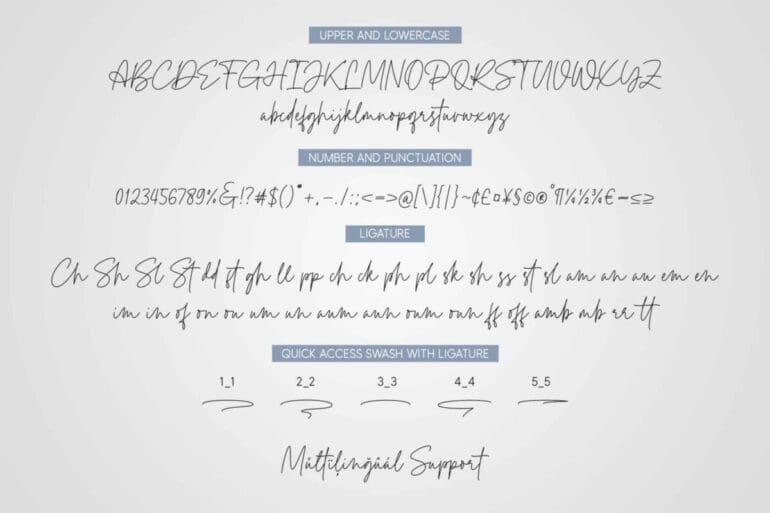 UPPER AND LOWERCASE
ABCDEFGHIJKLMNOPQRSTUVWXYZ
abcdefghijklmnopqrstuvwxyz
NUMBER AND PUNCTUATION
0123456789%&!?#$()*+,-./:;<=>@[\]{|}~¢£¤¥§©®°¶¼½¾€−≤≥
LIGATURE
Ch Sh Sl St dd ft gh ll pp ch ck ph pl sk sh ss st sl am an au em en
im in of on ou um un aum aun oum oun ff off amb mb rr tt
QUICK ACCESS SWASH WITH LIGATURE
1_1 2_2 3_3 4_4 5_5
Support